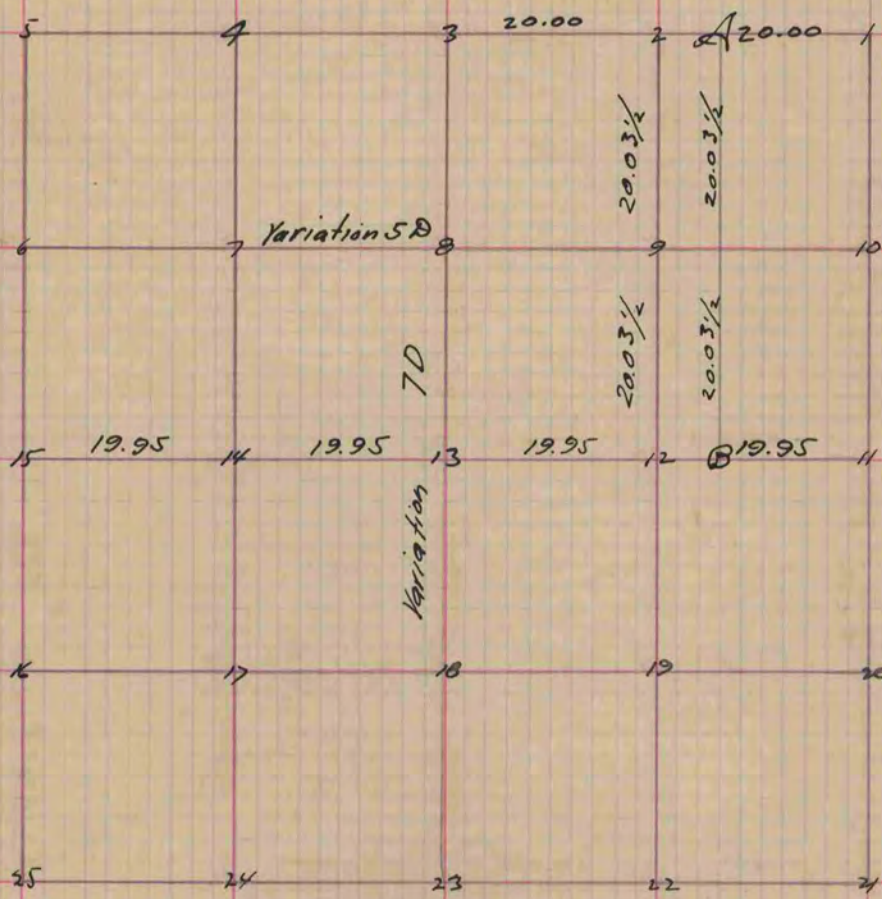 5 4 3 20.00 2 A 20.00 1
20.03½ 20.03½
6 7 Variation 5D 8 9 10
20.03½ 20.03½
Variation 7D
15 19.95 14 19.95 13 19.95 12 B 19.95 11
16 17 18 19 20
25 24 23 22 21